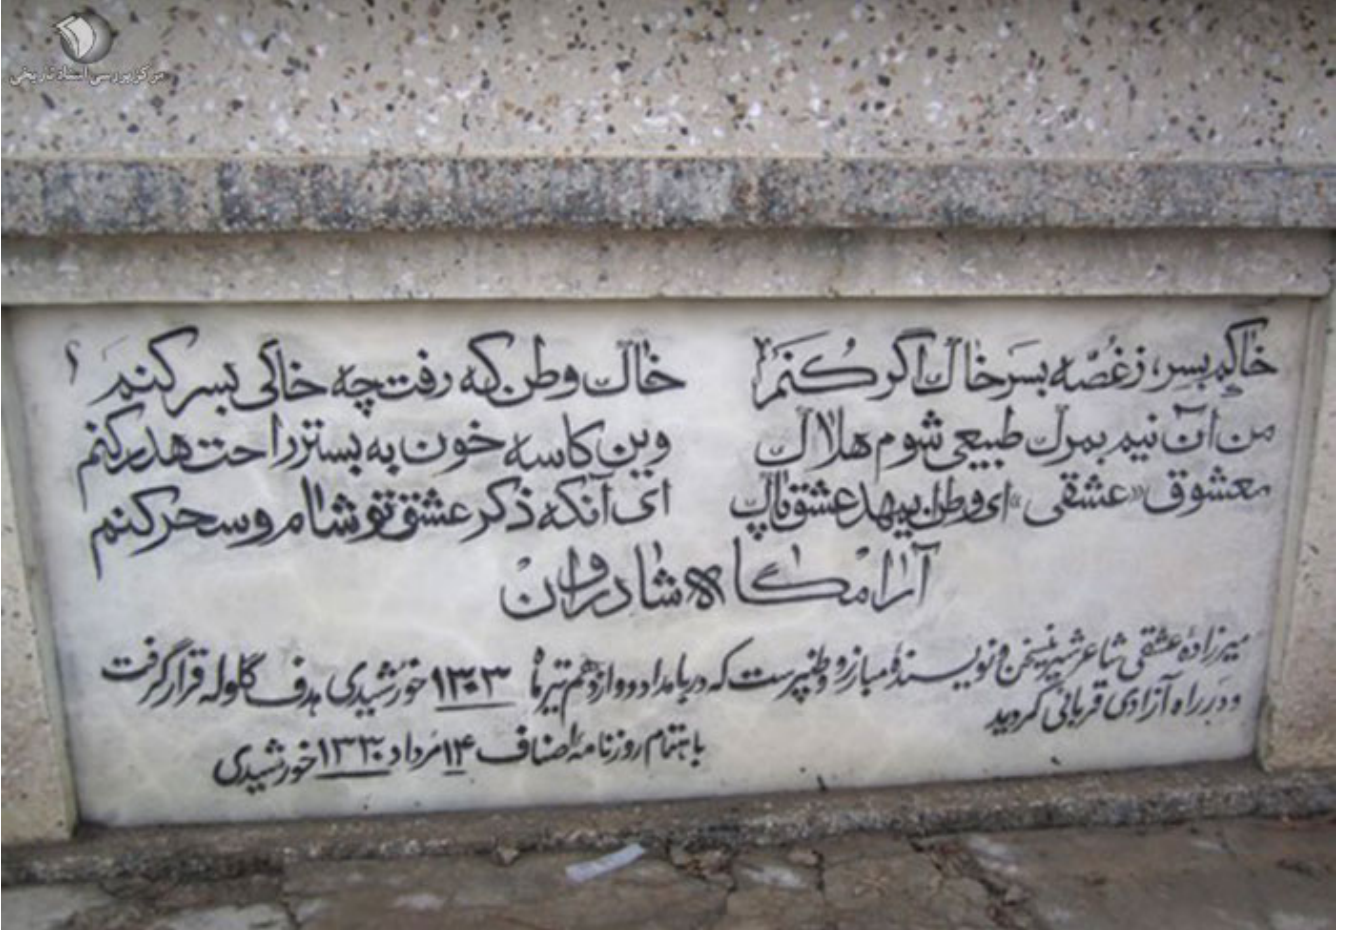 مرکز بررسی اسناد تاریخی
خاکم بسر، ز غصّه بسَر خاک اگر کُنَم خاک وطن که رفت چه خاکی بسر کنم
من آن نیم بمرک طبیعی شوم هلاک وین کاسه خون به بستر راحت هدر کنم
معشوق «عشقی» ای وطن ای عشق پاک ای آنکه ذکر عشق تو شام و سحر کنم
آرامگاه شادروان
میرزادهٔ عشقی شاعر شیرینسخن و نویسندهٔ مبارز و وطنپرست که در بامداد دوازدهم تیرماه ۱۳۰۳ خورشیدی هدف گلوله قرار گرفت
و در راه آزادی قربانی گردید
باهتمام روزنامهٔ اصناف ۱۴ مرداد ۱۳۳۰ خورشیدی